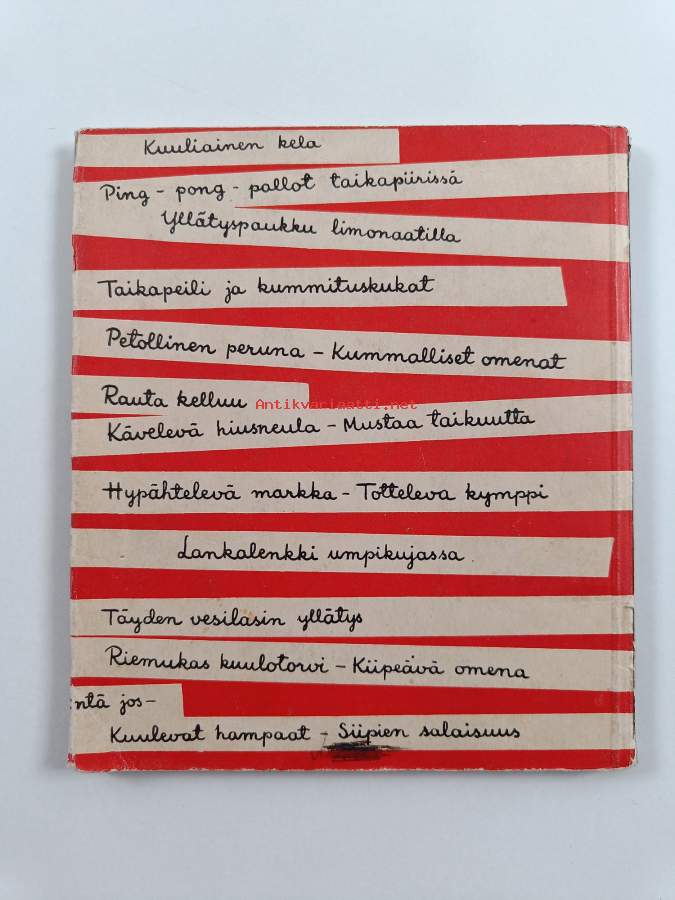 Kuuliainen kela
Ping - pong - pallot taikapiirissä
Yllätyspaukku limonaatilla
Taikapeili ja kummituskukat
Petollinen peruna - Kummalliset omenat
Rauta kelluu
Antikvariaatti.net
Kävelevä hiusneula - Mustaa taikuutta
Hypähtelevä markka - Totteleva kymppi
Lankalenkki umpikujassa
Täyden vesilasin yllätys
Riemukas kuulotorvi - Kiipeävä omena
ntä jos-
Kuulevat hampaat - Siipien salaisuus